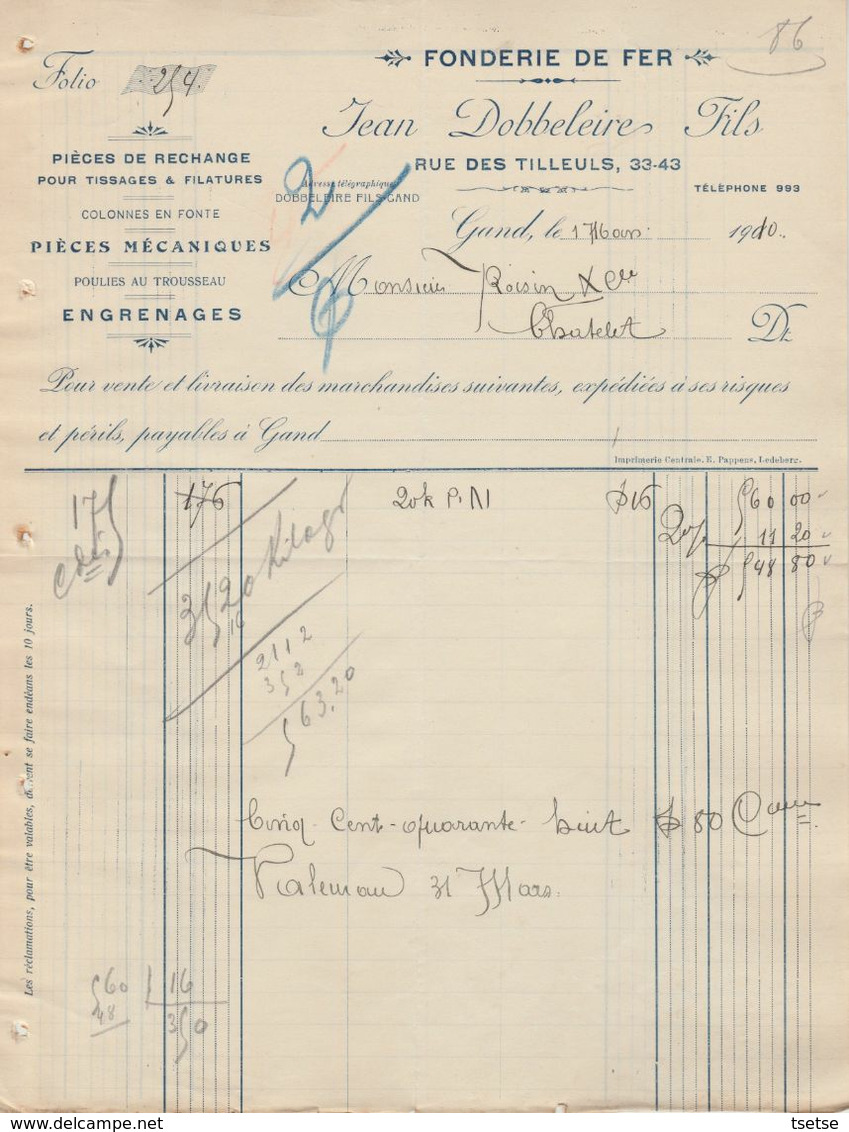 86
FONDERIE DE FER
Folio 254.
Jean Dobbeleire Fils
RUE DES TILLEULS, 33-43
TÉLÈPHONE 993
Adresse télégraphique
DOBBELEIRE FILS-GAND
PIÈCES DE RECHANGE
POUR TISSAGES & FILATURES
COLONNES EN FONTE
PIÈCES MÉCANIQUES
POULIES AU TROUSSEAU
ENGRENAGES
2
Gand, le 1 Mars 1910.
Monsieur Roisin & Cie
Chatelet Dt
Pour vente et livraison des marchandises suivantes, expédiées à ses risques
et périls, payables à Gand
Imprimerie Centrale, E. Pappens, Ledeberg.
175 176 20k P. N $16 560 00
2% 11 20
548 80
3520 Kilogr
16
2112
352
563,20
Cinq-Cent-quarante-huit $ 80 Cmes
31 Mars.
560 16
48 350
Les réclamations, pour être valables, doivent se faire endéans les 10 jours.
tsetse